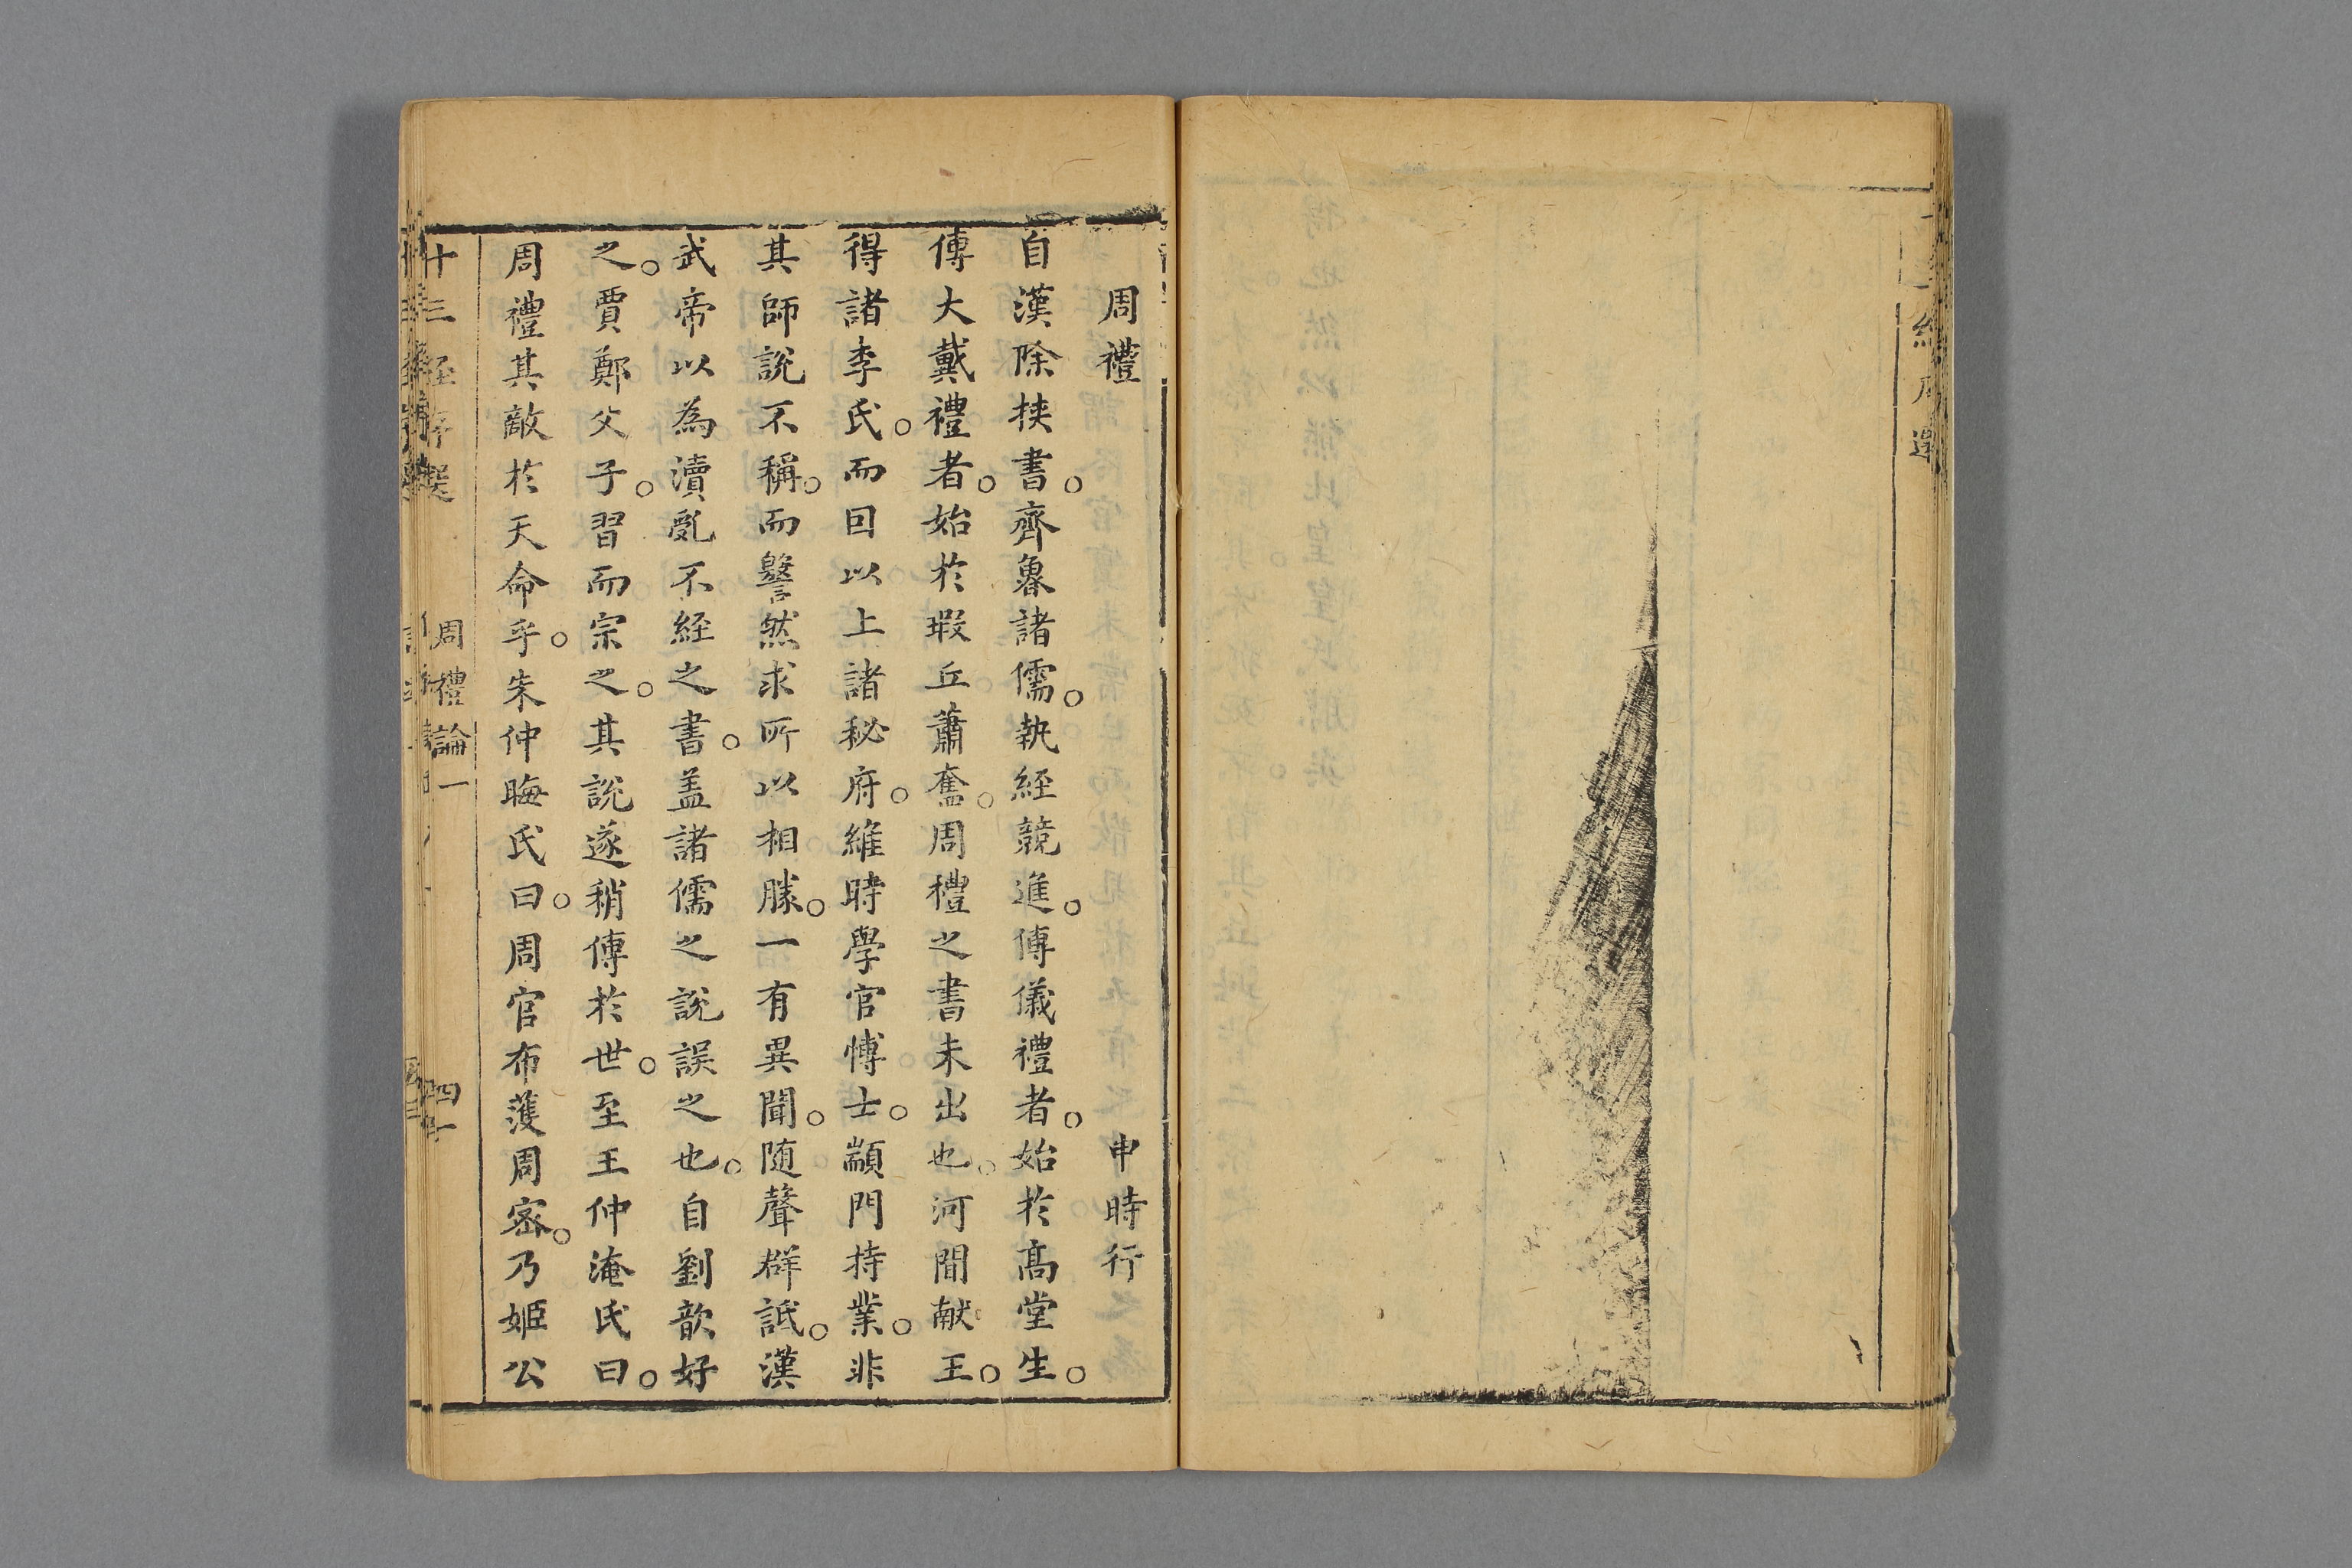 周禮　申時行
自漢除挾書。齊魯諸儒。執經競進。傳儀禮者。始於高堂生。
傳大戴禮者。始於瑕丘蕭奮。周禮之書未出也。河間献王。
得諸李氏。而回以上諸秘府。維時學官愽士。顓門持業。非
其師說不稱。而譥然求所以相勝。一有異聞。随聲群詆。漢
武帝以為瀆亂不經之書。盖諸儒之說誤之也。自劉歆好
之。賈鄭父子。習而宗之。其說遂稍傳於世。至王仲淹氏曰。
周禮其敵於天命乎。朱仲晦氏曰。周官布濩周密。乃姬公
十三經序選　周禮論一　四十